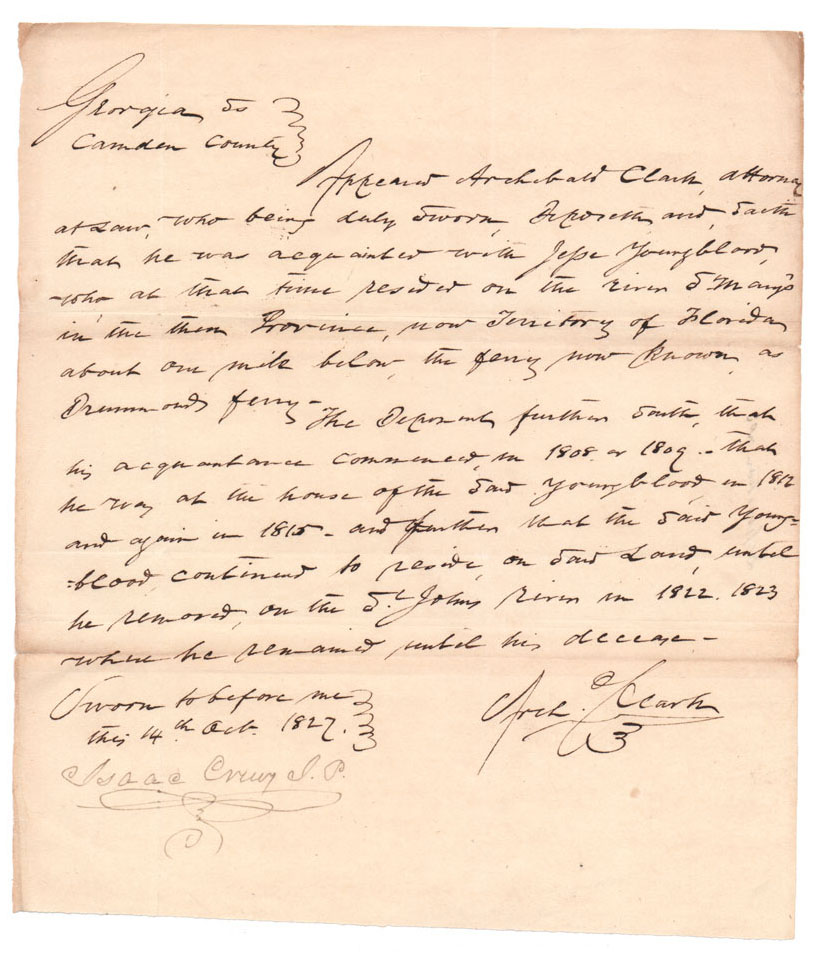 Georgia Ss
Camden County
Appeared Archibald Clark, attorney
at Law, who being duly Sworn, Deposeth and, Saith
that he was acquainted with Jesse Youngblood,
who at that time resided on the river St Mary's
in the then Province, now Territory of Florida
about one mile below, the ferry now known, as
Drummonds ferry-
The Deponent further Saith, that
his acquantance commenced, in 1808. or 1809 - that
he was at the house of the Said Youngblood, in 1812
and again in 1815 - and further that the Said Young=
=blood, continued to reside, on Said Land, until
he removed, on the St Johns river in 1822. 1823
where he remained until his decease -
Sworn to before me
this 14th Oct. 1827.
Arch. Clark
Isaac Crews J. P.